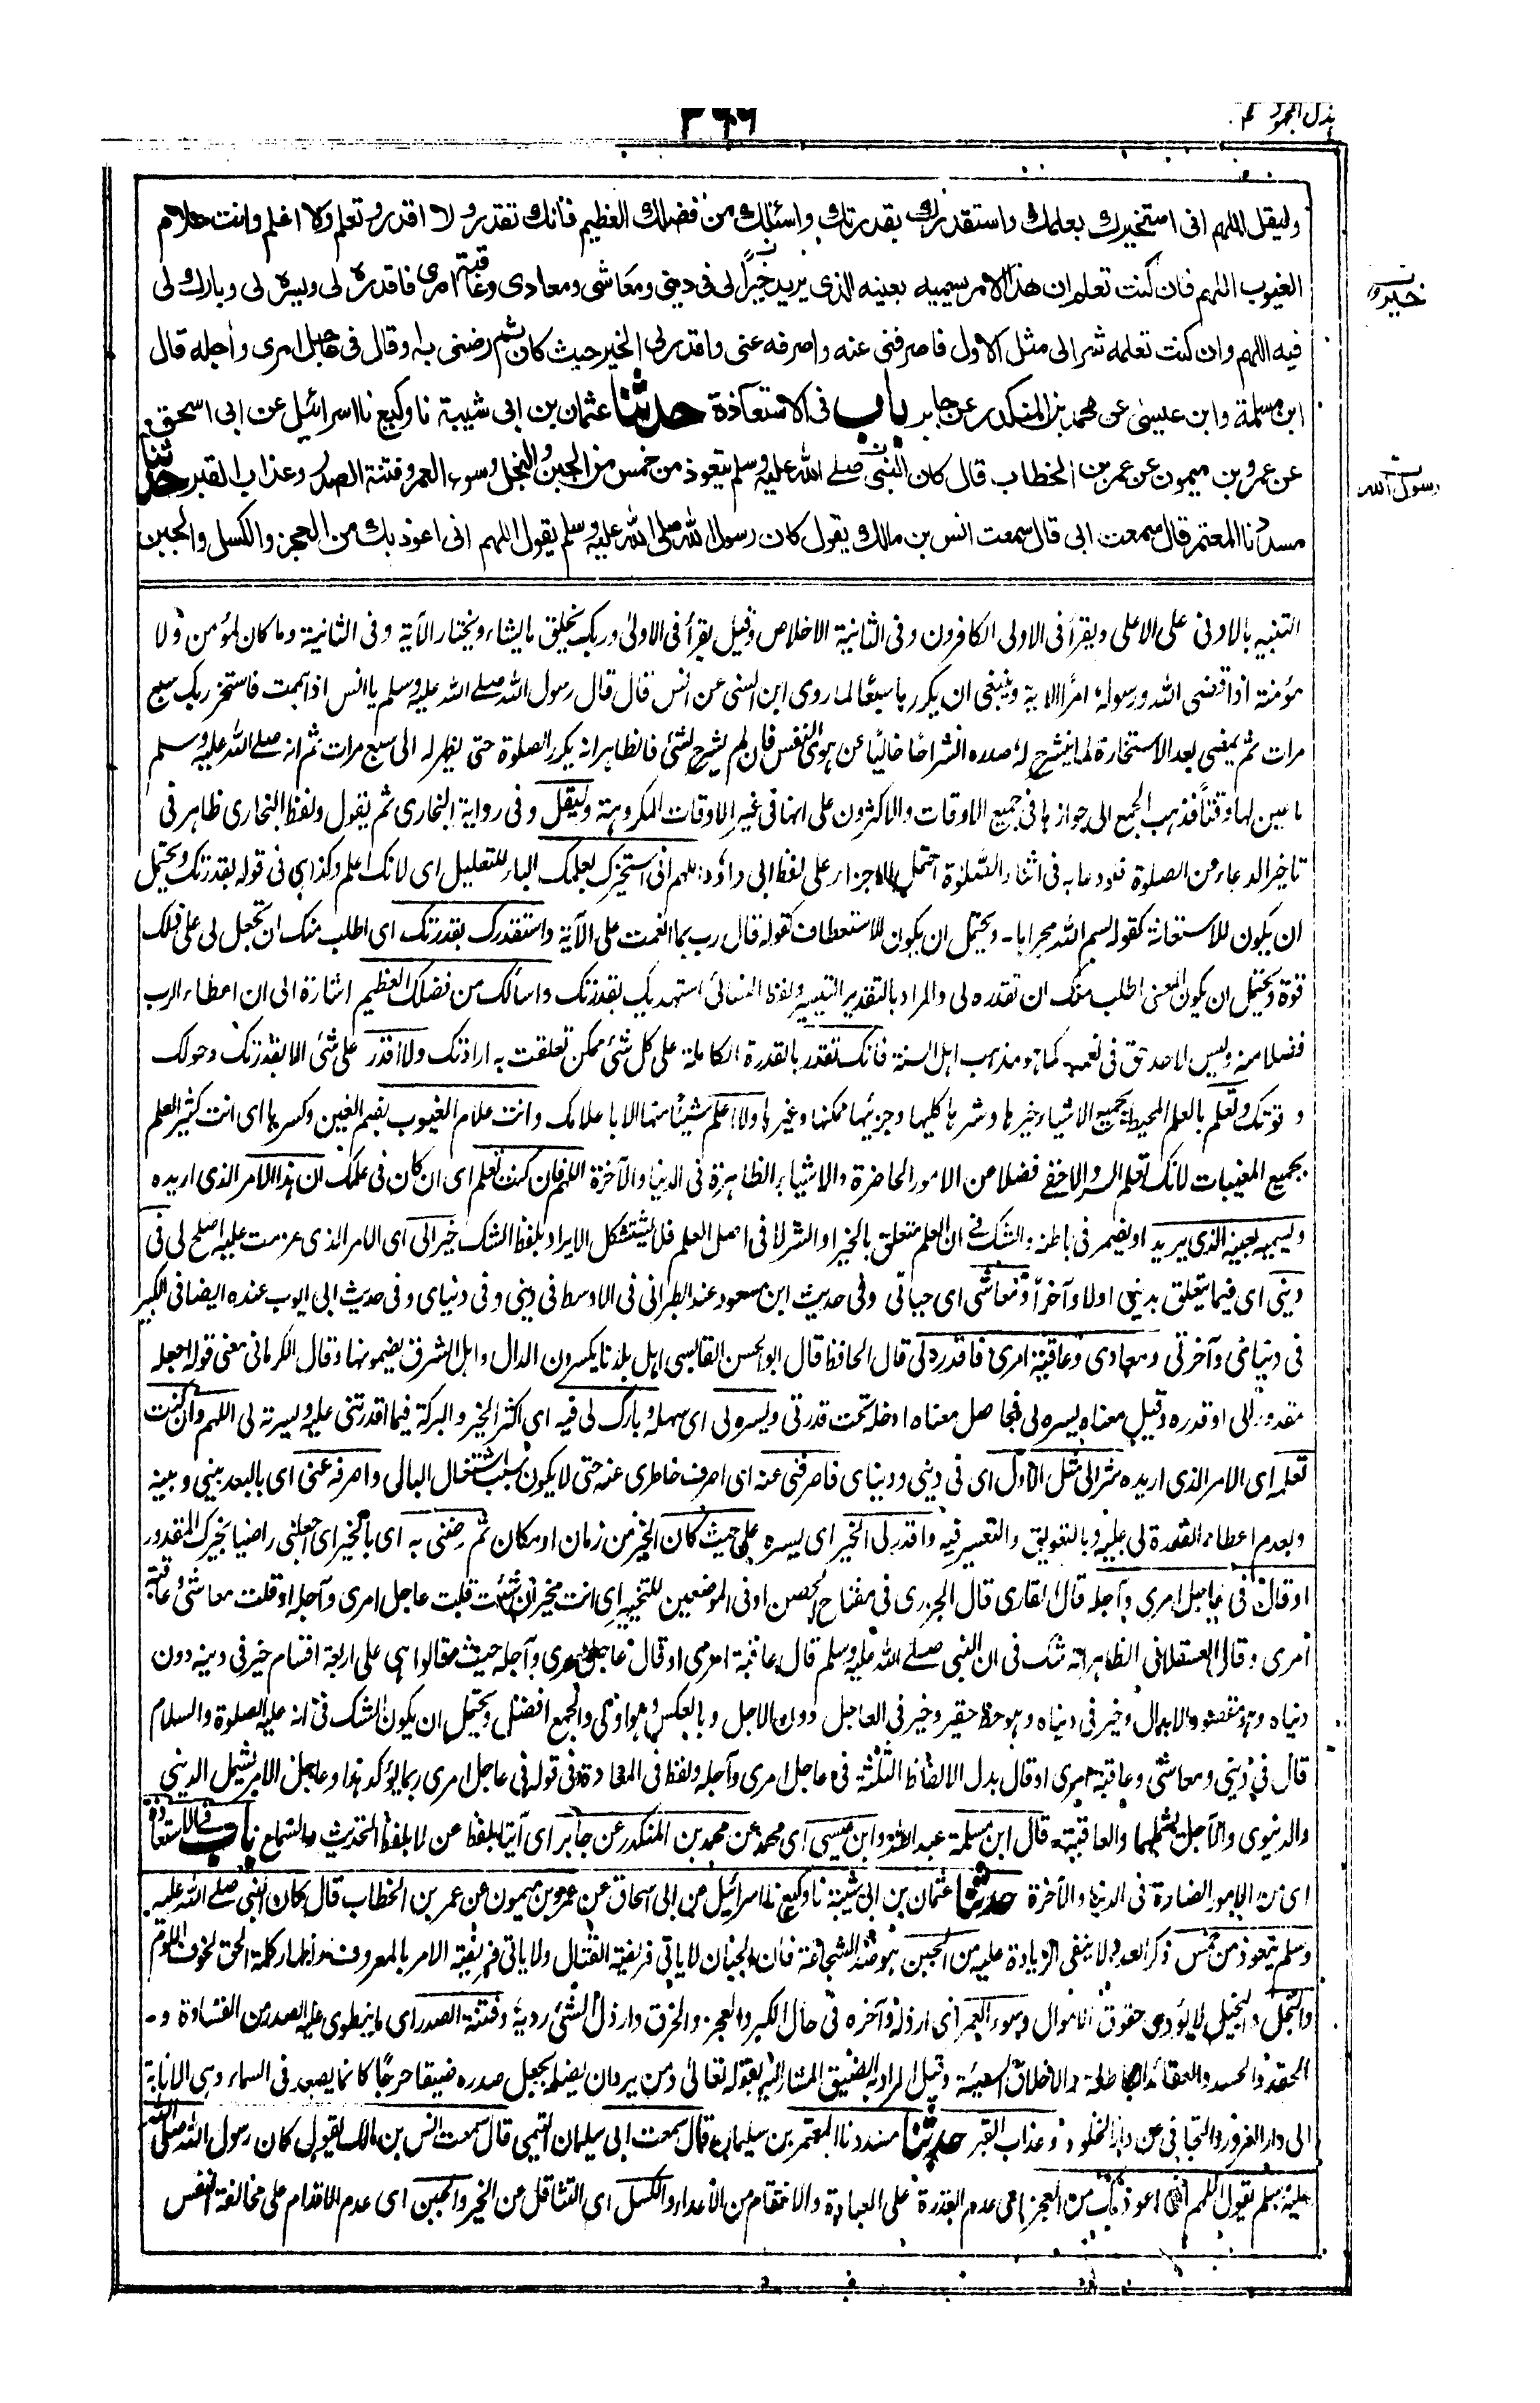 بذل المجهود
٣٦٦
وليقل اللهم انى استخيرك بعلمك واستقدرك بقدرتك واسئلك من فضلك العظيم فانك تقدر ولا اقدر وتعلم ولا اعلم وانت علام
الغيوب اللهم فان كنت تعلم ان هذا الامر يسميه بعينه الذى يريد خيرا لى فى دينى ومعاشى ومعادى وعاقبة امرى فاقدره لى ويسره لى وبارك لى
خير
فيه اللهم وان كنت تعلمه شرا لى مثل الاول فاصرفنى عنه واصرفه عنى واقدر لى الخير حيث كان ثم رضنى به او قال فى عاجل امرى وأجله قال
ابن مسلمة وابن عيسى عن محمد بن المنكدر عن جابر باب فى الاستعاذة حدثنا عثمان بن ابى شيبة نا وكيع نا اسرائيل عن ابى اسحق
عن عمرو بن ميمون عن عمر بن الخطاب قال كان النبى صلى الله عليه وسلم يتعوذ من خمس من الجبن والبخل وسوء العمر وفتنة الصدر وعذاب القبر حدثنا
رسول الله
مسدد نا المعتمر قال سمعت ابى قال سمعت انس بن مالك يقول كان رسول الله صلى الله عليه وسلم يقول اللهم انى اعوذ بك من العجز والكسل والجبن
التنبيه بالادنى على الاعلى ويقرأ فى الاولى الكافرون وفى الثانية الاخلاص وقيل يقرأ فى الاولى وربك يخلق ما يشاء ويختار الآية وفى الثانية وما كان لمؤمن ولا
مؤمنة اذا قضى الله ورسوله امرا الاية وينبغى ان يكررها سبعًا لما روى ابن السنى عن انس قال قال رسول الله صلى الله عليه وسلم يا انس اذا هممت فاستخر ربك سبع
مرات ثم يمضى بعد الاستخارة لما ينشرح له صدره انشراحًا خاليًا عن هوى النفس فان لم ينشرح لشئ فالظاهر انه يكرر الصلوة حتى يظهر له الى سبع مرات ثم انه صلى الله عليه وسلم
ما عين لها وقتًا فذهب الجمع الى جوازها فى جميع الاوقات والاكثرون على انها فى غير الاوقات المكروهة وليقل وفى رواية البخارى ثم يقول ولفظ البخارى ظاهر فى
تاخير الدعاء عن الصلوة فلو دعا به فى اثناء الصلوة احتمل الاجزاء على لفظ ابى داؤد اللهم انى استخيرك بعلمك الباء للتعليل اى لانك اعلم وكذا هى فى قوله بقدرتك ويحتمل
ان يكون للاستعانة كقوله بسم الله مجراها - ويحتمل ان يكون للاستعطاف كقوله قال رب بما انعمت على الآية واستقدرك بقدرتك اى اطلب منك ان تجعل لى على ذلك
قوة ويحتمل ان يكون المعنى اطلب منك ان تقدره لى والمراد بالتقدير التيسير ولفظ النسائى استهديك بقدرتك واسألك من فضلك العظيم اشارة الى ان اعطاء الرب
فضلا منه وليس لاحد حق فى نعمه كما هو مذهب اهل السنة فانك تقدر بالقدرة الكاملة على كل شئ ممكن تعلقت به ارادتك ولا اقدر على شئ الا بقدرتك وحولك
وقوتك وتعلم بالعلم المحيط بجميع الاشياء خيرها وشرها كليها وجزئيها ممكنها وغيرها ولا اعلم شيئًا منها الا باعلامك وانت علام الغيوب بضم الغين وكسرها اى انت كثير العلم
بجميع المغيبات لانك تعلم السر والاخفى فضلا من الامور الحاضرة والاشياء الظاهرة فى الدنيا والآخرة اللهم فان كنت تعلم اى ان كان فى علمك ان هذا الامر الذى اريده
ويسميه بعينه الذى يريد او يضمر فى باطنه والشك فى ان العلم متعلق بالخير او الشر لا فى اصل العلم فلا يستشكل الايراد بلفظ الشك خيرا لى اى الامر الذى عزمت عليه اصلح لى فى
دينى اى فيما يتعلق بدينى اولا وآخرًا ومعاشى اى حياتى وفى حديث ابن مسعود عند الطبرانى فى الاوسط فى دينى وفى دنياى وفى حديث ابى ايوب عنده ايضا فى الكبير
فى دنياى وآخرتى ومعادى وعاقبة امرى فاقدره لى قال الحافظ قال ابو الحسن القابسى اهل بلدنا يكسرون الدال واهل الشرق يضمونها وقال الكرمانى معنى قوله اجعله
مقدورا لى او قدره وقيل معناه يسره لى فحاصل معناه ادخله تحت قدرتى ويسره لى اى سهله وبارك لى فيه اى اكثر الخير والبركة فيما اقدرتنى عليه ويسرته لى اللهم وان كنت
تعلمه اى الامر الذى اريده شرا لى مثل الاول اى فى دينى ودنياى فاصرفنى عنه اى اصرف خاطرى عنه حتى لا يكون سبب اشتغال البالى واصرفه عنى اى بالبعد بينى وبينه
وبعدم اعطاء القدرة لى عليه وبالتعويق والتعسير فيه واقدر لى الخير اى يسره على حيث كان الخير من زمان او مكان ثم رضنى به اى بالخير اى اجعلنى راضيا بخيرك المقدور
او قال فى عاجل امرى وآجله قال القارى قال الجزرى فى مفتاح الحصن او فى الموضعين للتخيير اى انت مخير ان شئت قلت عاجل امرى وآجله او قلت معاشى وعاقبة
امرى وقال العسقلانى الظاهر انه شك فى ان النبى صلى الله عليه وسلم قال عاقبة امرى او قال عاجل امرى وآجله حيث قالوا هى على اربعة اقسام خير فى دينه دون
دنياه وهو مقصود الابدال وخير فى دنياه وهو حظ حقير وخير فى العاجل دون الاجل وبالعكس وهو اولى والجمع افضل ويحتمل ان يكون الشك فى انه عليه الصلوة والسلام
قال فى دينى ومعاشى وعاقبة امرى او قال بدل الالفاظ الثلثة فى عاجل امرى وآجله ولفظ فى المعادة فى قوله فى عاجل امرى ربما يؤكد هذا وعاجل الامر يشمل الدينى
والدنيوى والآجل يشملهما والعاقبة قال ابن مسلمة عبد الله وابن عيسى اى محمد عن محمد بن المنكدر عن جابر اى أتيا بلفظ عن لا بلفظ التحديث والسماع باب فى الاستعاذة
اى من الامور الضارة فى الدنيا والآخرة حدثنا عثمان بن ابى شيبة نا وكيع نا اسرائيل عن ابى اسحاق عن عمرو بن ميمون عن عمر بن الخطاب قال كان النبى صلى الله عليه
وسلم يتعوذ من خمس ذكر العدد لا ينفى الزيادة عليه من الجبن هو ضد الشجاعة فان الجبان لا ياتى فريضة القتال ولا ياتى فريضة الامر بالمعروف واظهار كلمة الحق لخوف اللوم
والبخل والبخيل لا يؤدى حقوق الاموال وسوء العمر اى ارذله وآخره فى حال الكبر والعجز والخرق وارذل الشئ رديه وفتنة الصدر اى ما ينطوى عليه الصدر من القساوة و-
الحقد والحسد والعقائد الباطلة والاخلاق السيئة وقيل المراد به الضيق المشار اليه بقوله تعالى ومن يرد ان يضله يجعل صدره ضيقا حرجًا كانما يصعد فى السماء وهى الانابة
الى دار الغرور والتجافى عن دار الخلود وعذاب القبر حدثنا مسدد نا المعتمر بن سليمان قال سمعت ابى سليمان التيمى قال سمعت انس بن مالك يقول كان رسول الله صلى الله
عليه وسلم يقول اللهم انى اعوذ بك من العجز اى عدم القدرة على العبادة والانتقام من الاعداء والكسل اى التثاقل عن الخير والجبن اى عدم الاقدام على مخالفة النفس